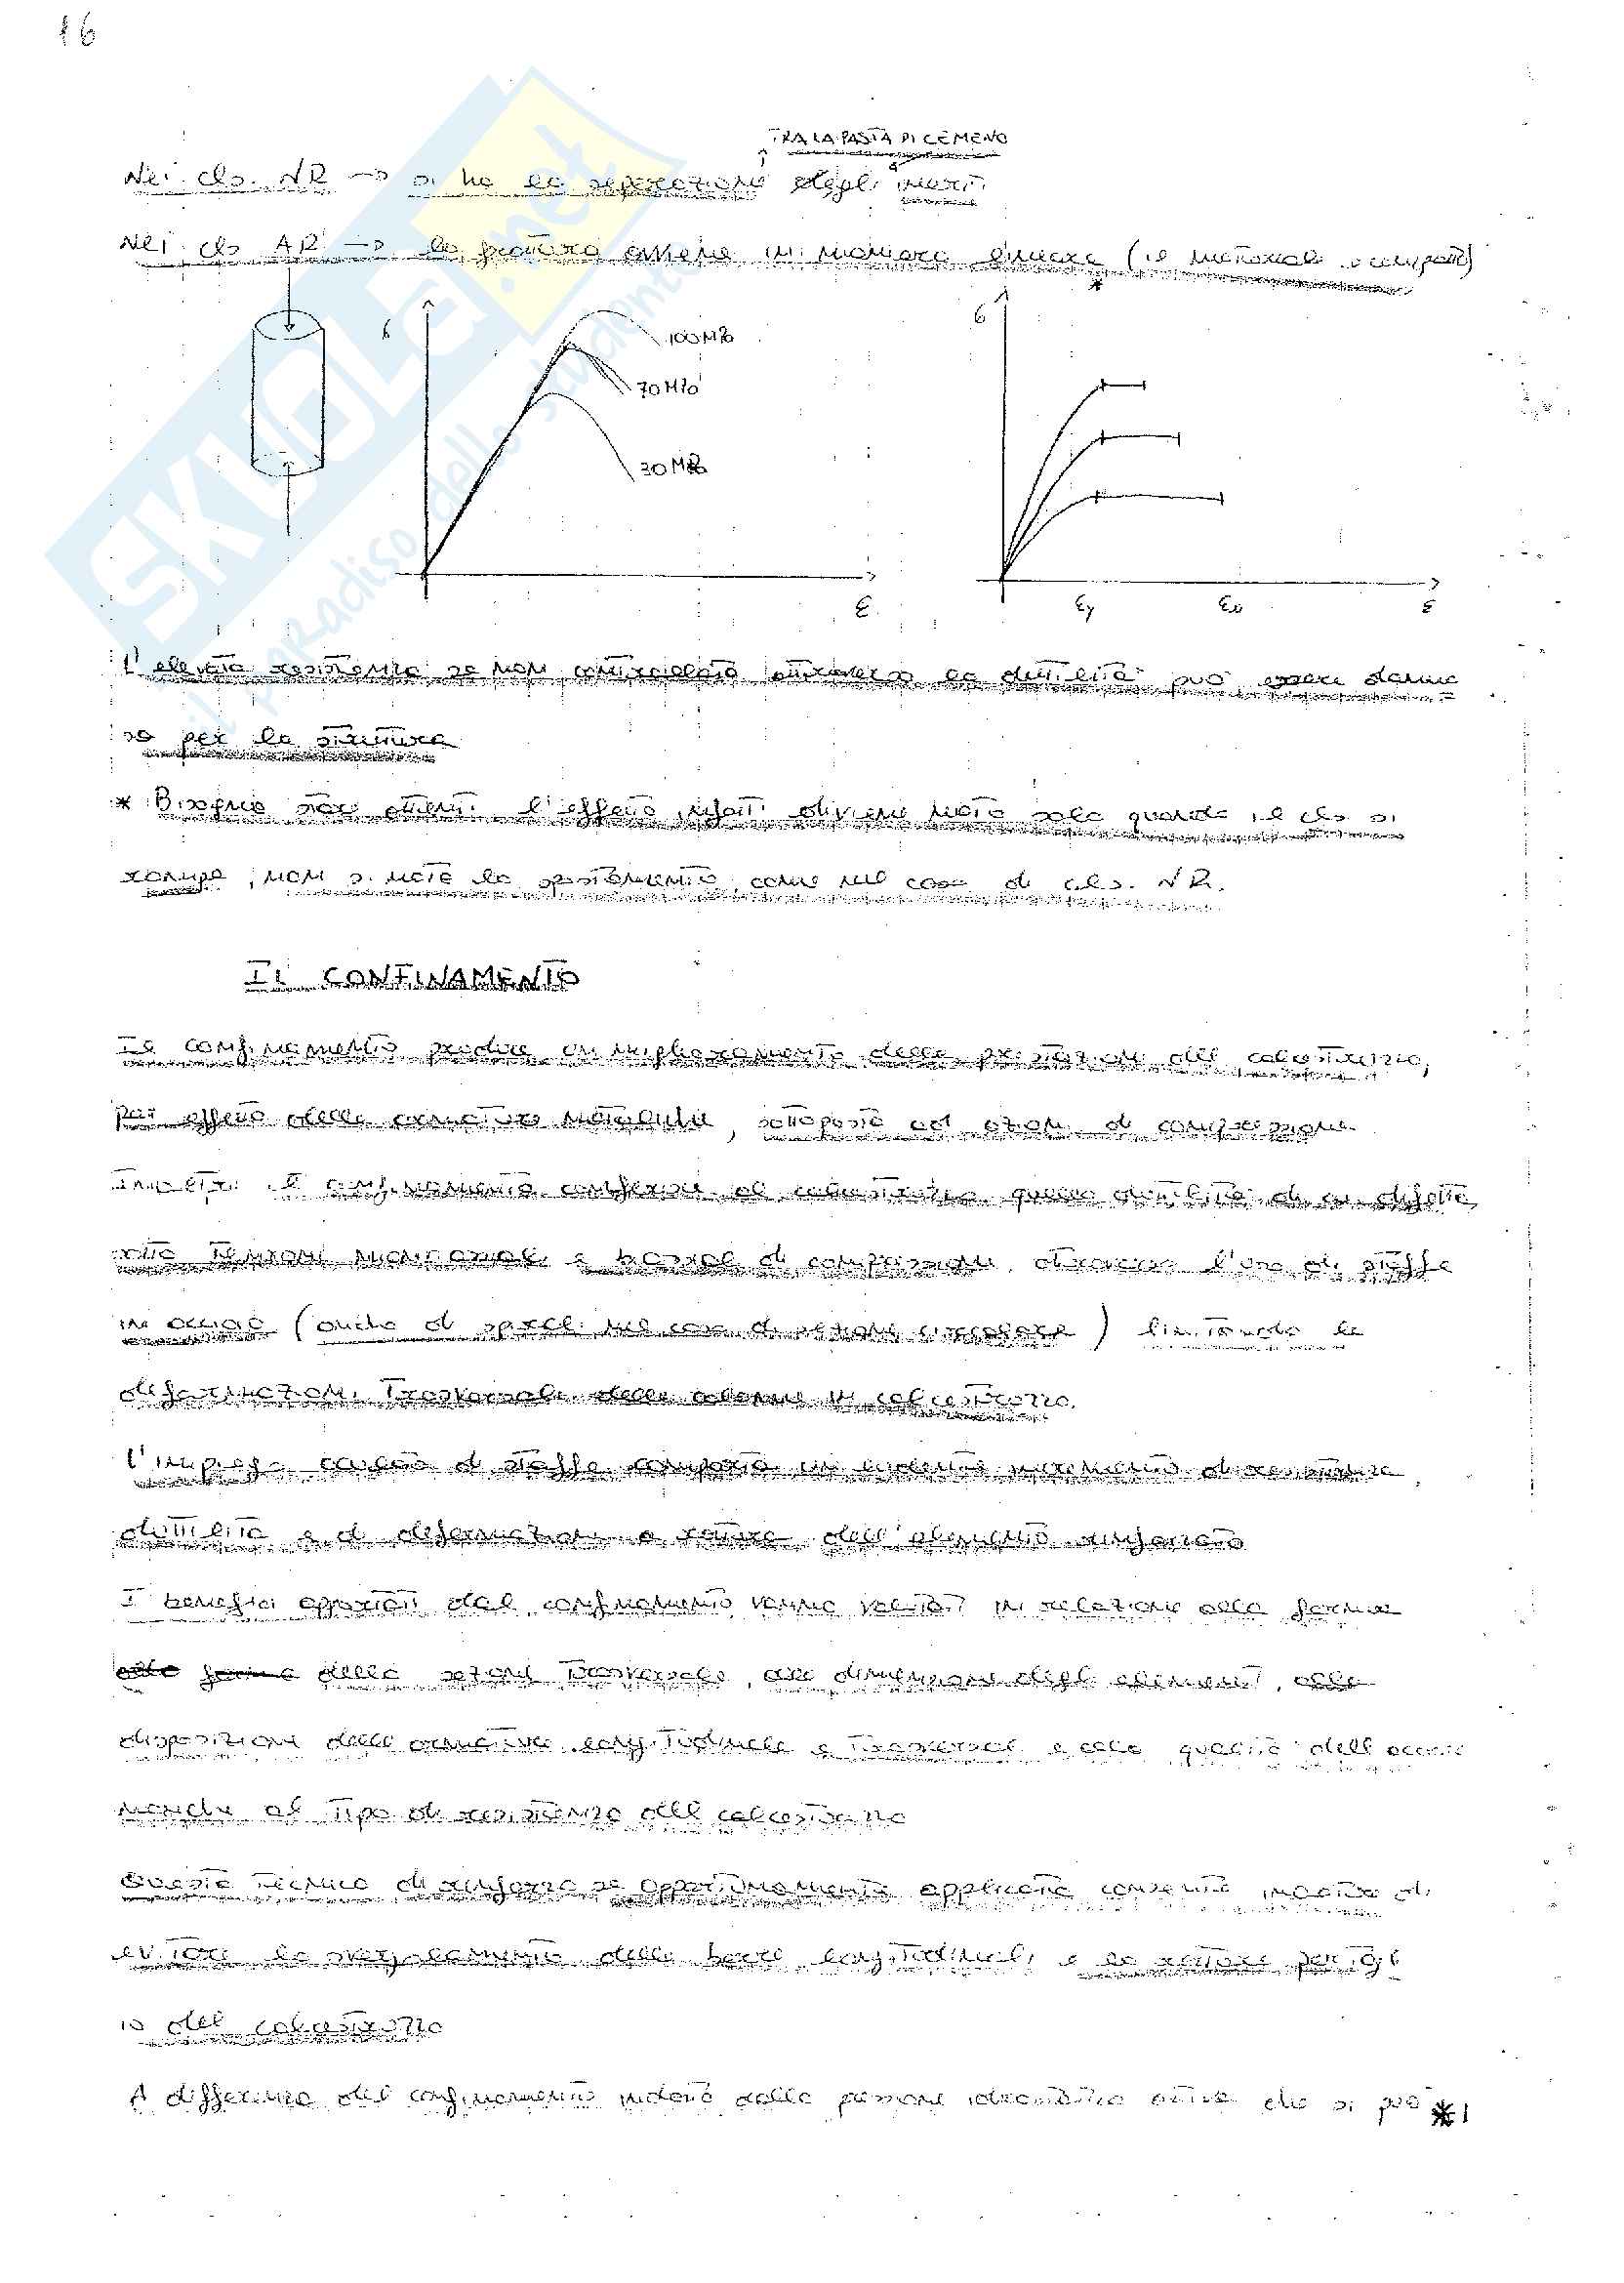 16
TRA LA PASTA DI CEMENO
Nei cls. NR → si ha la separazione degli inerti
Nei cls AR → la frattura avviene in maniera lineare (il materiale è compatto)
*
σ
100 MPa
70 MPa
30 MPa
ε
σ
εy
εu
ε
L'elevata resistenza se non controllata attraverso la duttilità può essere danno
so per la struttura
* Bisogna stare attenti l'effetto infatti diviene noto solo quando il cls si
rompe, non si nota lo spostamento come nel caso di cls. NR.
IL CONFINAMENTO
Il confinamento produce un miglioramento delle prestazioni del calcestruzzo,
per effetto delle armature metalliche, sottoposto ad azioni di compressione.
Infatti il confinamento conferisce al calcestruzzo quella duttilità di cui difetta
sotto tensioni monoassiali e biassiali di compressione, attraverso l'uso di staffe
in acciaio (anche di spirali nel caso di sezioni circolare) limitando le
deformazioni trasversali delle colonne in calcestruzzo.
L'impiego accurato di staffe comporta un evidente incremento di resistenza,
duttilità e di deformazione a rottura dell'elemento rinforzato
I benefici apportati dal confinamento vanno valutati in relazione alla forma
alla forma della sezione trasversale, alle dimensioni degli elementi, alla
disposizione delle armature longitudinale e trasversale e alla qualità dell'acciaio
nonché al tipo di resistenza del calcestruzzo
Questa tecnica di rinforzo se opportunamente applicata consente inoltre di
evitare lo svergolamento delle barre longitudinali e la rottura per tagl
io del calcestruzzo
A differenza del confinamento indotto dalla pressione idrostatica attiva che si può *1
SKUOLA.net
il paradiso dello studente